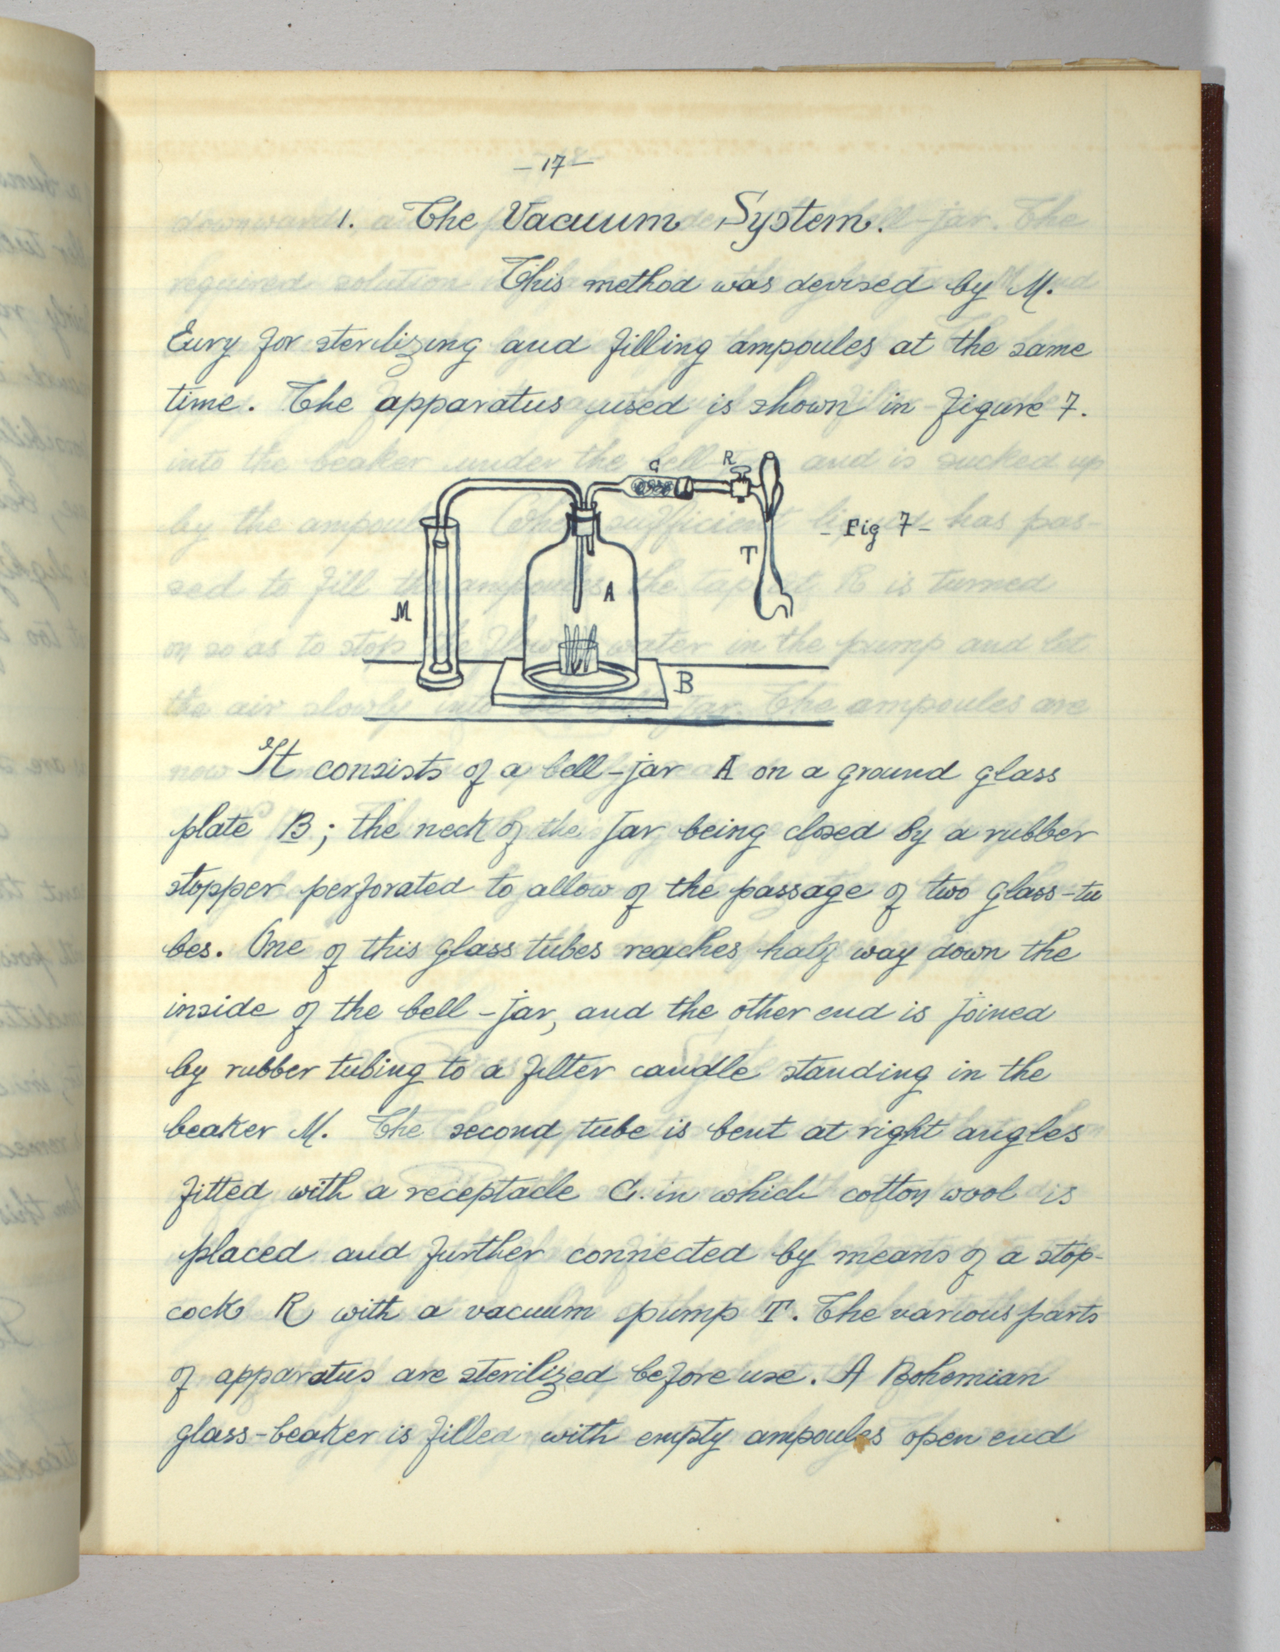 – 17 –
1. The Vacuum System.
This method was devised by M.
Eury for sterilizing and filling ampoules at the same
time. The apparatus used is shown in figure 7.
C R
- Fig 7 -
T
A
M
B
It consists of a bell-jar A on a ground glass
plate B; the neck of the jar being closed by a rubber
stopper perforated to allow of the passage of two glass-tu
bes. One of this glass tubes reaches half way down the
inside of the bell-jar, and the other end is joined
by rubber tubing to a filter candle standing in the
beaker M. The second tube is bent at right angles
fitted with a receptacle C. in which cotton wool is
placed and further connected by means of a stop-
cock R with a vacuum pump T. The various parts
of apparatus are sterilized before use. A Bohemian
glass-beaker is filled with empty ampoules open end